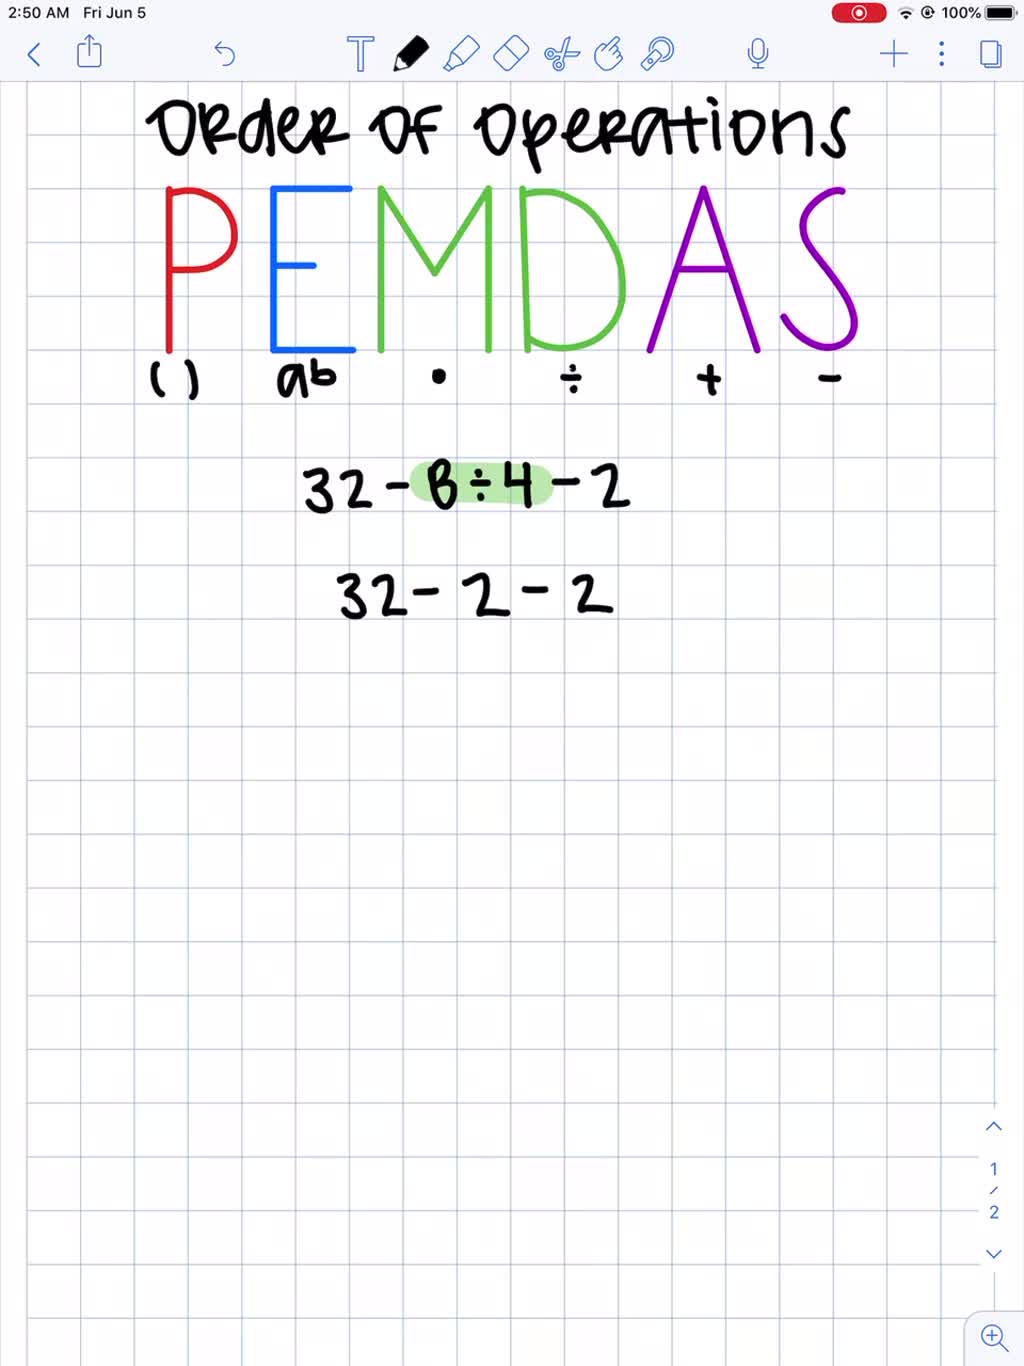 2:50 AM Fri Jun 5 100%
Order of Operations
PEMDAS
( ) ab • ÷ + -
32 - 8 ÷ 4 - 2
32 - 2 - 2
1
/
2